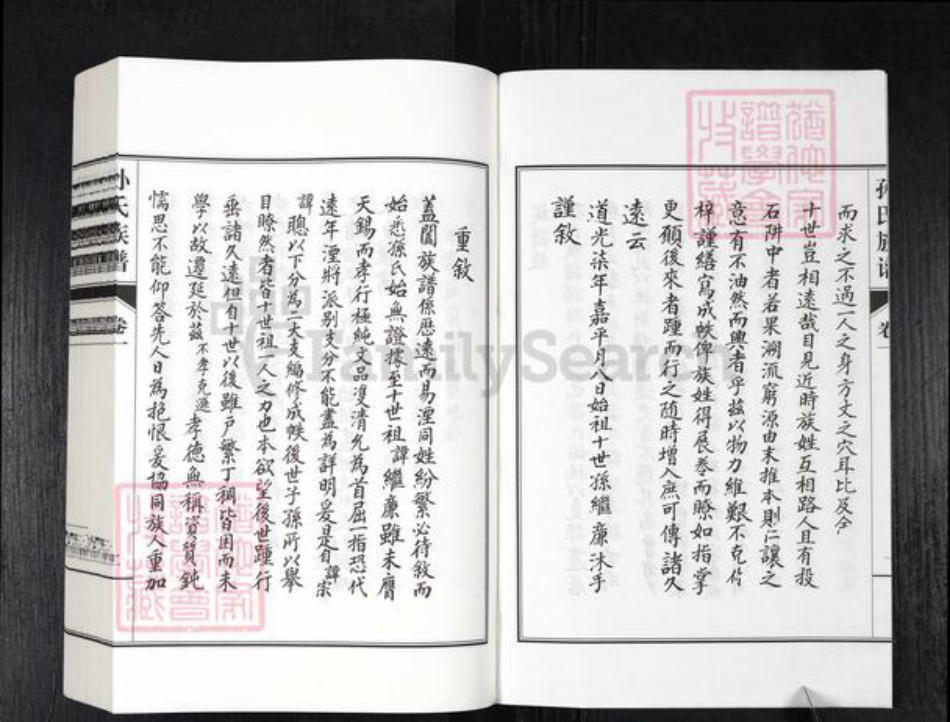 而求之不過一人之身方丈之穴耳比及全
十世豈相遠哉目見近時族姓互相路人且有投
石阱中者若果溯流窮源由末推本則仁讓之
意有不油然而興者乎茲以物力維艱不克付
梓謹繕寫成帙俾族姓得展卷而瞭如指掌
更願後來者踵而行之随時增入庶可傳諸久
遠云
道光柒年嘉平月八日始祖十世孫繼廉沐手
謹敘
孫氏族譜
卷一
重敘
蓋聞族譜係歷遠而易湮同姓紛繁必待敘而
始悉孫氏始無證據至十世祖諱繼廉雖未膺
天錫而孝行極純文品双清允為首屈一指恐代
遠年湮將派别支分不能盡為詳明爰是自諱宗
諱聰以下分為二大支編修成帙後世子孫所以舉
目瞭然者皆十世祖一人之力也本欲望後世踵行
垂諸久遠但自十世以後雖戶繁丁稠皆困而未
學以故遷延於茲不孝克選孝德無稱資質鈍
懦思不能仰答先人日為抱恨爰協同族人重加
孙氏族譜
卷一
FamilySearch